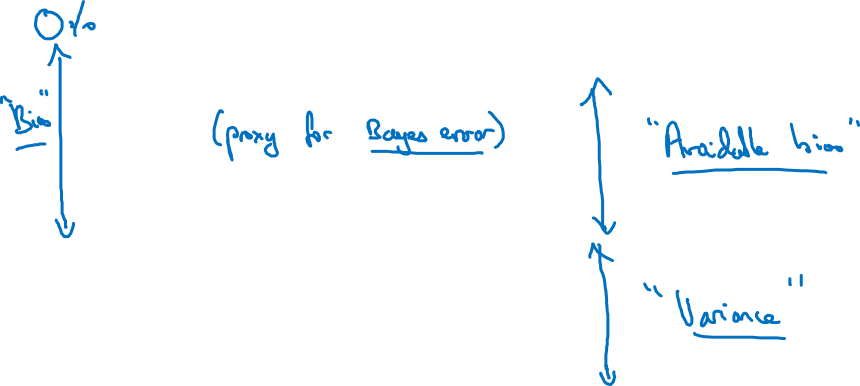 0%
"Bias"
(proxy for Bayes error)
"Avoidable bias"
"Variance"